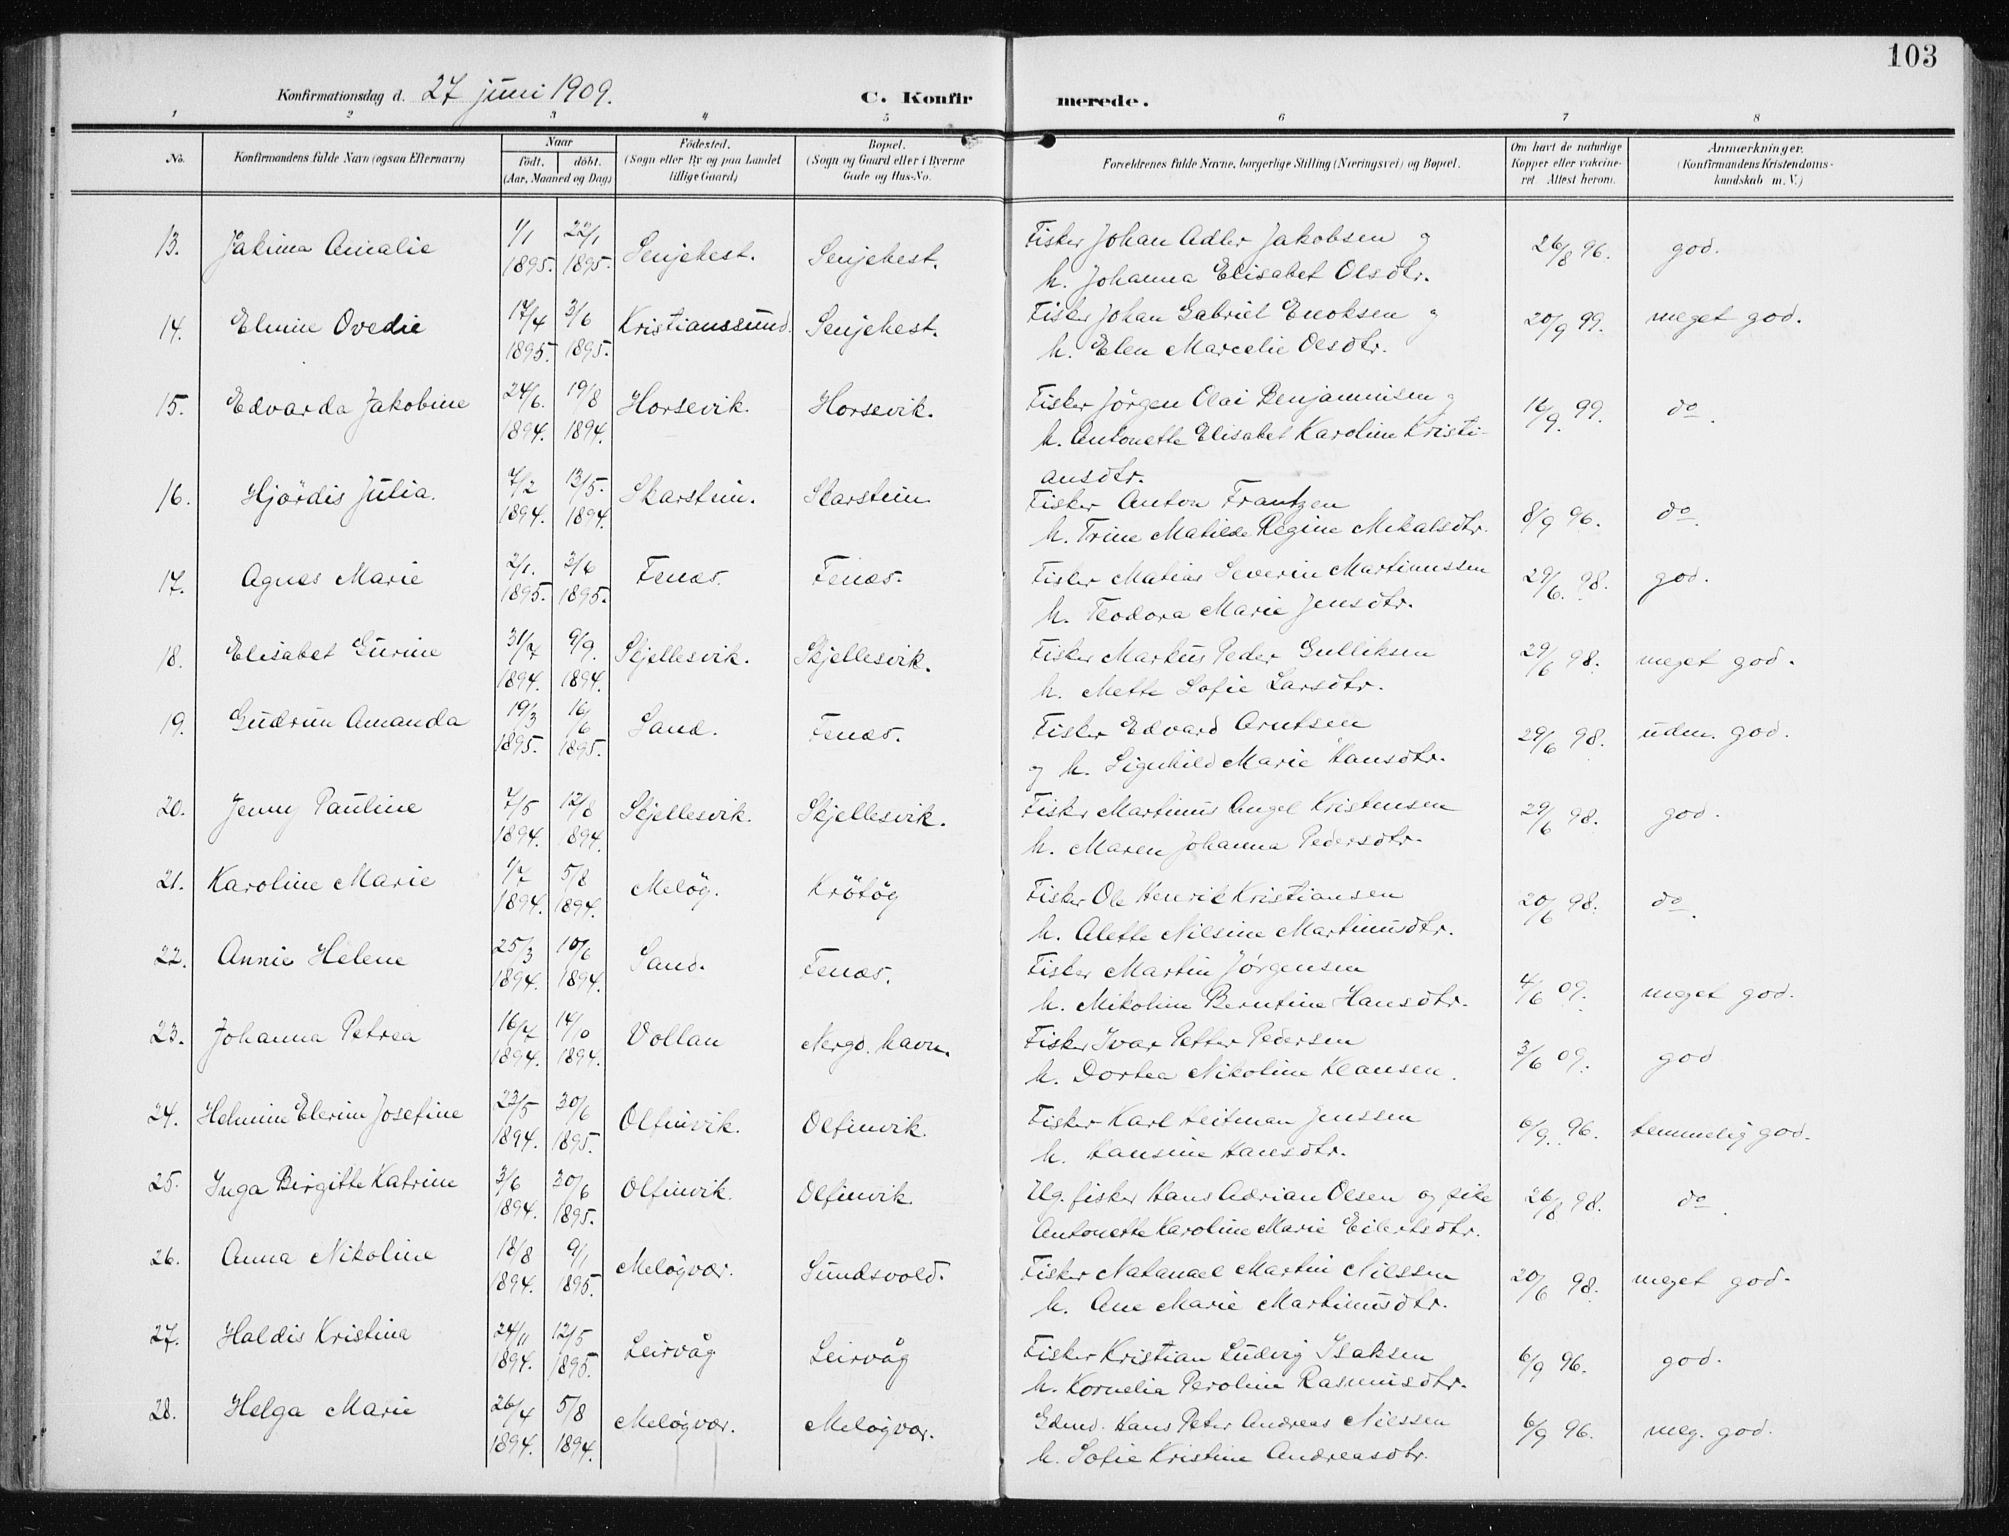 103
Konfirmationsdag d. 27 juni 1909. C. Konfir merede.
1 2 3 4 5 6 7 8
No. Konfirmandens fulde Navn (ogsaa Efternavn) Naar födt. döbt. (Aar, Maaned og Dag) Födested. (Sogn eller By og paa Landet tillige Gaard) Bopæl. (Sogn og Gaard eller i Byerne Gade og Hus-No. Forældrenes fulde Navne, borgerlige Stilling (Næringsvei) og Bopæl. Om havt de naturlige Kopper eller vakcineret. Attest herom. Anmærkninger. (Konfirmandens Kristendomskundskab m. V.)
13. Jakima Amalie 1/1 1895. 22/1 1895. Senjehest. Senjehest. Fisker Johan Adler Jakobsen og 26/8 96. god.
h. Johanna Elisabet Olsdtr.
14. Elmine Ovedie 17/4 1895. 3/6 1895. Kristianssund. Senjehest. Fisker Johan Gabriel Enoksen og 20/9 99. meget god.
h. Elen Marcelie Olsdtr.
15. Edvarda Jakobine 24/6. 1894. 19/8 1894. Horsevik. Horsevik. Fisker Jörgen Olai Benjaminsen og 16/9. 99. do.
h. Antonette Elisabet Karoline Kristi-
ansdtr.
16. Hjördis Julia. 7/2 1894. 13/5. 1894. Skarstein. Skarstein Fisker Anton Frantzen 8/9 96. do.
h. Trine Matilde Regine Mikalsdtr.
17. Agnes Marie 2/1. 1895. 3/6 1895. Fenes. Fenes. Fisker Matias Severin Martinussen 29/6. 98. god.
h. Teodora Marie Jensdtr.
18. Elisabet Gurine 31/7 1894. 9/9. 1894. Skjellesvik. Skjellesvik. Fisker Markus Peder Gulliksen 29/6 98. meget god.
h. Mette Sofie Larsdtr.
19. Gudrun Amanda 19/3 1895. 16/6 1895. Sand. Fenes. Fisker Edvard Arntsen 29/6 98. udm. god.
og h. Signhild Marie Hansdtr.
20. Jenny Pauline 7/5 1894. 12/8 894. Skjellesvik. Skjellesvik. Fisker Martinus Angel Kristensen 29/6 98. god.
h. Maren Johanna Pedersdtr.
21. Karoline Marie 1/7 1894. 5/8 1894. Melög. Krötög Fisker Ole Henrik Kristiansen 20/6 98. do.
h. Alette Nilsine Martinusdtr.
22. Annie Helene 25/3 1894. 10/6 1894. Sand. Fenes. Fisker Martin Jörgensen 4/6 09. meget god.
h. Nikoline Berntine Hansdtr.
23. Johanna Petrea 16/7 1894. 14/10 1894. Vollan Nergd. havn. Fisker Ivar Petter Pedersen 3/6 09. god
h. Dortea Nikoline Klausen.
24. Helmine Elerine Josefine 23/5 1894. 30/6 1895. Olfinvik. Olfinvik. Fisker Karl Heitman Jenssen 6/9. 96. temmelig god.
h. Hansine Hansdtr.
25. Inga Birgitte Katrine 3/6 1894. 30/6 1895. Olfinvik. Olfinvik. Ug. fisker Hans Adrian Olsen og pike 26/8 98. do.
Antonette Karoline Marie Eilertsdtr.
26. Anna Nikoline 18/8 1894. 9/1 1895. Melögvær. Sundsvold. Fisker Natanael Martin Nilssen 20/6 98. meget god.
h. Ane Marie Martinusdtr.
27. Haldis Kristina 24/11 1894. 12/5 1895. Leirvåg Leirvåg Fisker Kristian Ludvig Isaksen 6/9 96. god.
h. Kornelia Peroline Rasmusdtr.
28. Helga Marie 26/4 1894. 5/8 1894. Melögvær. Melögvær. Gdmd. Hans Peter Andreas Nilssen 6/9 96. meg. god.
h. Sofie Kristine Andreasdtr.